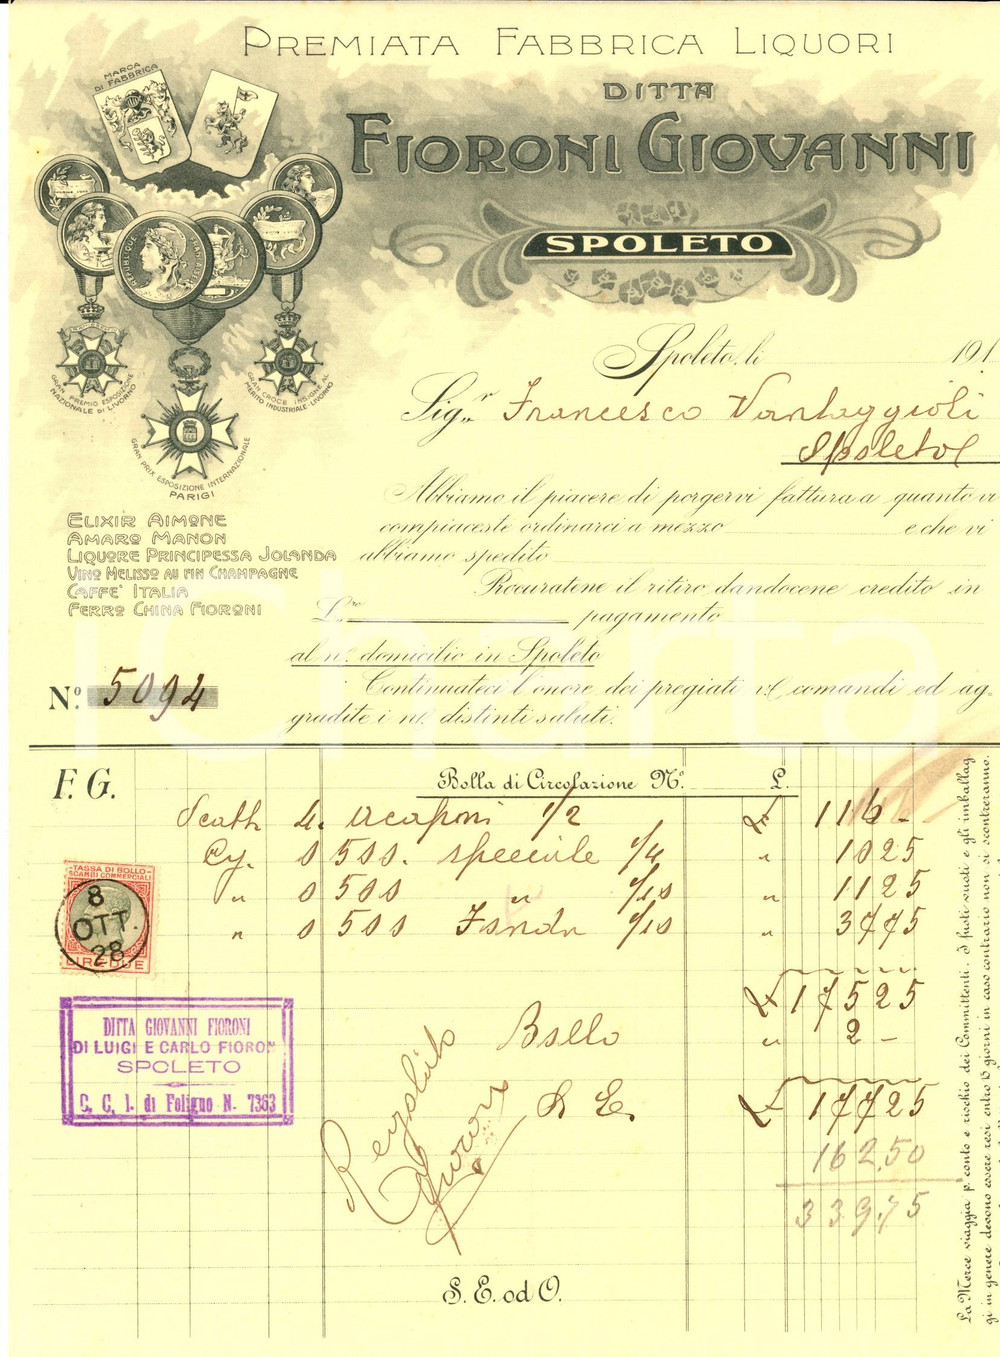 PREMIATA FABBRICA LIQUORI
DITTA
FIORONI GIOVANNI
SPOLETO
MARCA
DI FABBRICA
REPUBLIQUE FRANÇAISE
GRAN PREMIO ESPOSIZIONE
NAZIONALE DI LIVORNO
GRAN CROCE INSIGNE AL
MERITO INDUSTRIALE-LIVORNO
GRAN PRIX ESPOSIZIONE INTERNAZIONALE
PARIGI
Spoleto, li 191
Sigr. Francesco Vantaggioli
Spoleto
Abbiamo il piacere di porgervi fattura a quanto vi
compiaceste ordinarci a mezzo e che vi
abbiamo spedito
Procuratene il ritiro dandocene credito in
Lre pagamento
al ns. domicilio in Spoleto
Continuateci l'onore dei pregiati vs. comandi ed ag-
gradite i ns. distinti saluti.
ELIXIR AIMONE
AMARO MANON
LIQUORE PRINCIPESSA JOLANDA
VINO MELISSO AU FIN CHAMPAGNE
CAFFE' ITALIA
FERRO CHINA FIORONI
No. 5094
F. G.
Bolla di Circolazione No. L.
Scatt 4. acaponi 1/2 £ 116 -
Cy. 0 500. speciale 1/4 " 1025
" 0 500 " 1/10 " 1125
" 0 500 1/10 " 3775
£ 17525
Bollo " 2 -
S E. £ 17725
162.50
339.75
TASSA DI BOLLO
SCAMBI COMMERCIALI
8
OTT.
28
LIRE DUE
DITTA GIOVANNI FIORONI
DI LUIGI E CARLO FIORON
SPOLETO
C. C. I. di Foligno N. 7363
Fioroni
S. E. od O.
La Merce viaggia p. conto e rischio dei Committenti. I fusti vuoti e gli imballag
gi in genere devono essere resi entro 15 giorni in caso contrario non si sconteranno.
iCharta